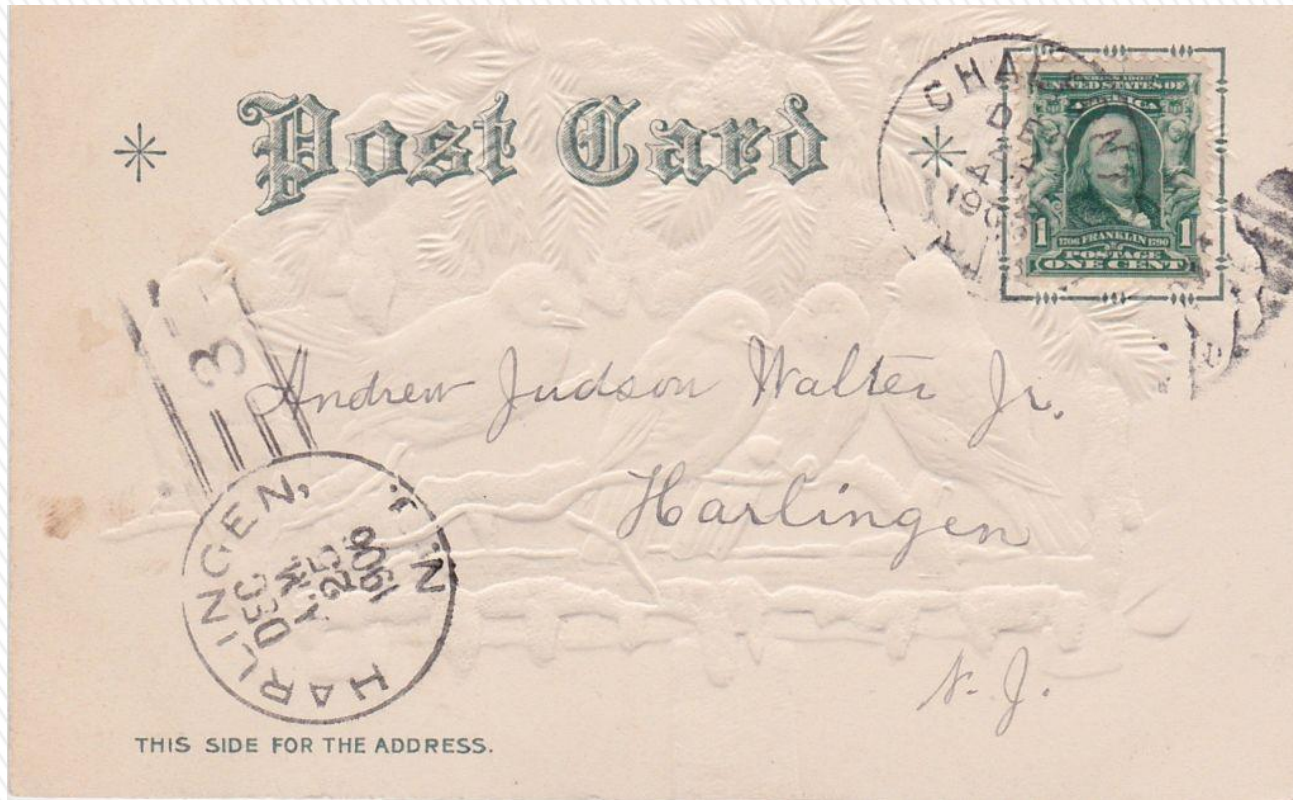 Post Card
SERIES 1902
UNITED STATES OF
AMERICA
1706 FRANKLIN 1790
1 1
POSTAGE
ONE CENT
3
Andrew Judson Walter Jr.
Harlingen
N. J.
HARLINGEN, N.J.
DEC
A.M.
25
1908
THIS SIDE FOR THE ADDRESS.